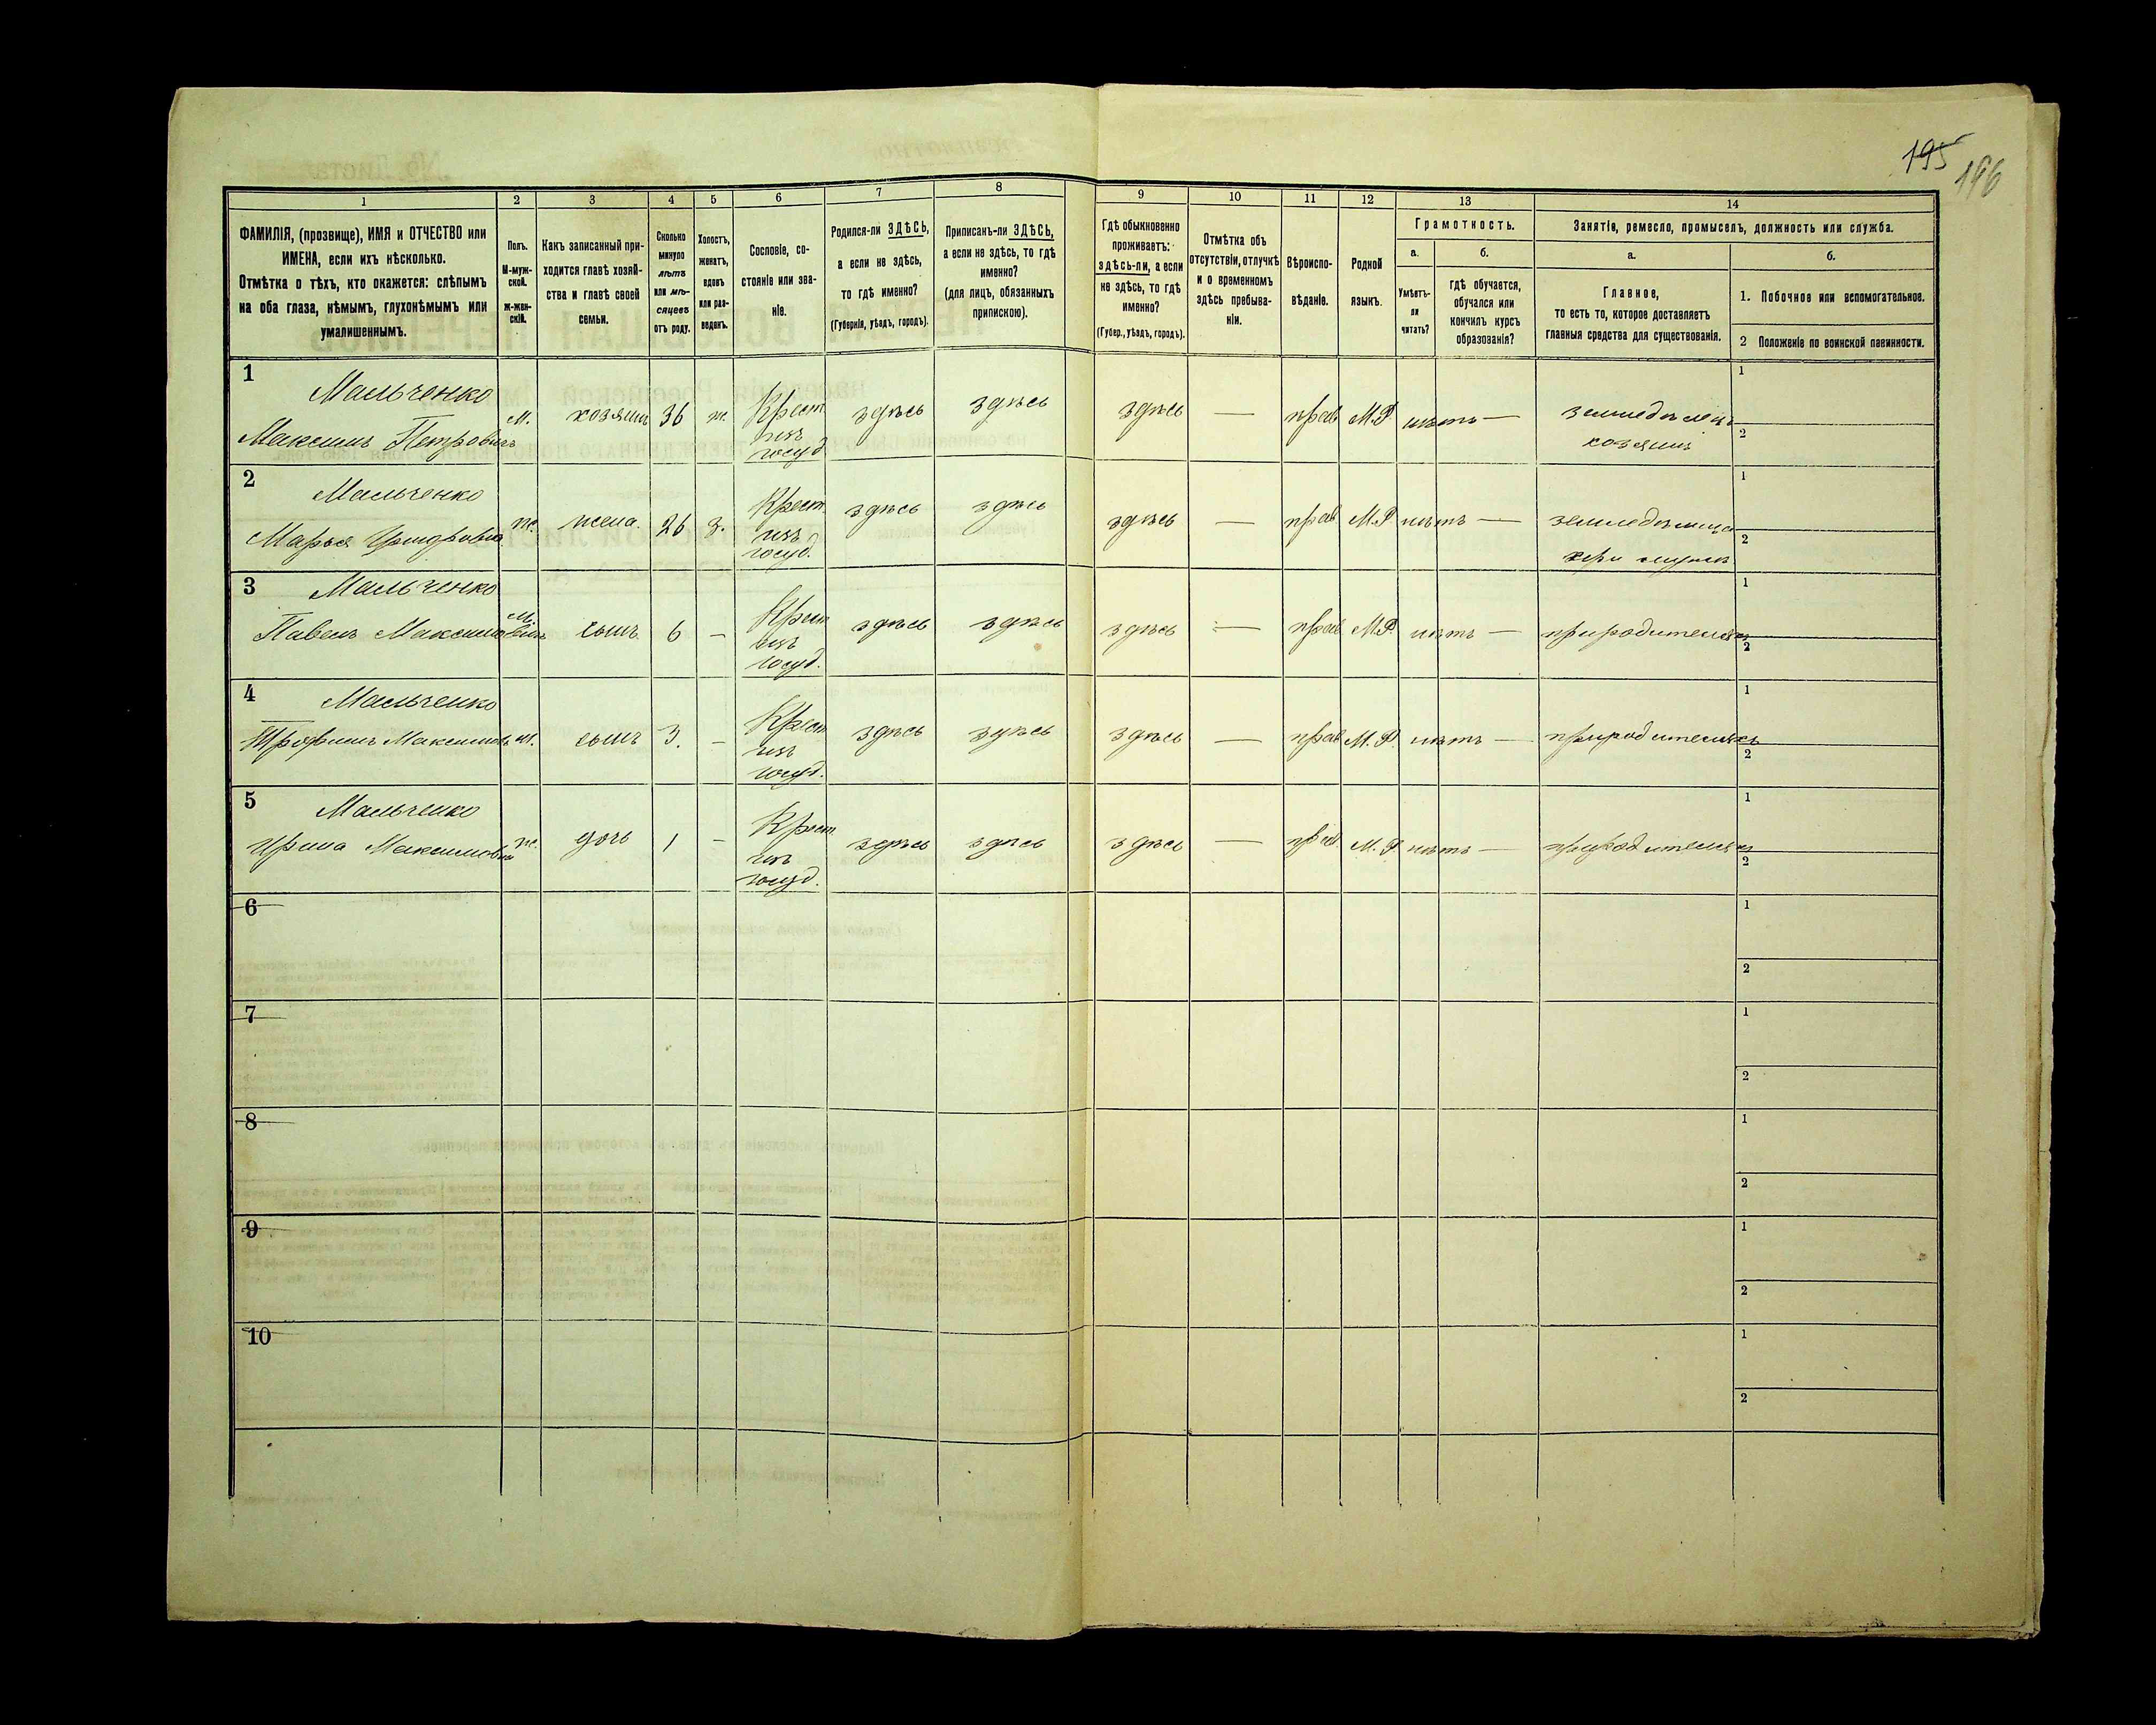 195
196
1
2
3
4
5
6
7
8
9
10
11
12
13
14
ФАМИЛІЯ, (прозвище), ИМЯ и ОТЧЕСТВО или
ИМЕНА, если ихъ нѣсколько.
Отмѣтка о тѣхъ, кто окажется: слѣпымъ
на оба глаза, нѣмымъ, глухонѣмымъ или
умалишеннымъ.
Полъ.
М-муж-
ской.
Ж-жен-
скій.
Какъ записанный при-
ходится главѣ хозяй-
ства и главѣ своей
семьи.
Сколько
минуло
лѣтъ
или мѣ-
сяцевъ
отъ роду.
Холостъ,
женатъ,
вдовъ
или раз-
веденъ.
Сословіе, со-
стояніе или зва-
ніе.
Родился-ли ЗДѢСЬ,
а если не здѣсь,
то гдѣ именно?
(Губернія, уѣздъ, городъ).
Приписанъ-ли ЗДѢСЬ,
а если не здѣсь, то гдѣ
именно?
(для лицъ, обязанныхъ
припискою).
Гдѣ обыкновенно
проживаетъ:
здѣсь-ли, а если
не здѣсь, то гдѣ
именно?
(Губер., уѣздъ, городъ).
Отмѣтка объ
отсутствіи, отлучкѣ
и о временномъ
здѣсь пребыва-
ніи.
Вѣроиспо-
вѣданіе.
Родной
языкъ.
Грамотность.
а.
Умѣетъ-
ли
читать?
б.
гдѣ обучается,
обучался или
кончилъ курсъ
образованія?
Занятіе, ремесло, промыселъ, должность или служба.
а.
Главное,
то есть то, которое доставляетъ
главныя средства для существованія.
б.
1. Побочное или вспомогательное.
2 Положеніе по воинской повинности.
1
Мальченко
Максимъ Петровичъ
м.
хозяинъ
36
ж.
Крест
изъ
госуд
здѣсь
здѣсь
здѣсь
—
прав
М.Р
нѣтъ
—
земледѣлецъ
хозяинъ
1
2
2
Мальченко
Марья
ж.
жена.
26
з.
Крест
изъ
госуд.
здѣсь
здѣсь
здѣсь
—
прав
М.Р
нѣтъ
—
при мужѣ
1
2
3
Мальченко
Павелъ Максимовичъ
м.
сынъ
6
—
Крест
изъ
госуд.
здѣсь
здѣсь
здѣсь
—
прав
М.Р.
нѣтъ
—
при родителяхъ
1
2
4
Мальченко
Трофимъ Максимовъ
м.
сынъ
3.
—
Крест
изъ
госуд.
здѣсь
здѣсь
здѣсь
—
прав
М.Р.
нѣтъ
—
при родителяхъ
1
2
5
Мальченко
Ирина Максимовна
ж.
дочь
1
—
Крест
изъ
госуд.
здѣсь
здѣсь
здѣсь
—
прав
М.Р
нѣтъ
—
при родителяхъ
1
2
6
1
2
7
1
2
8
1
2
9
1
2
10
1
2